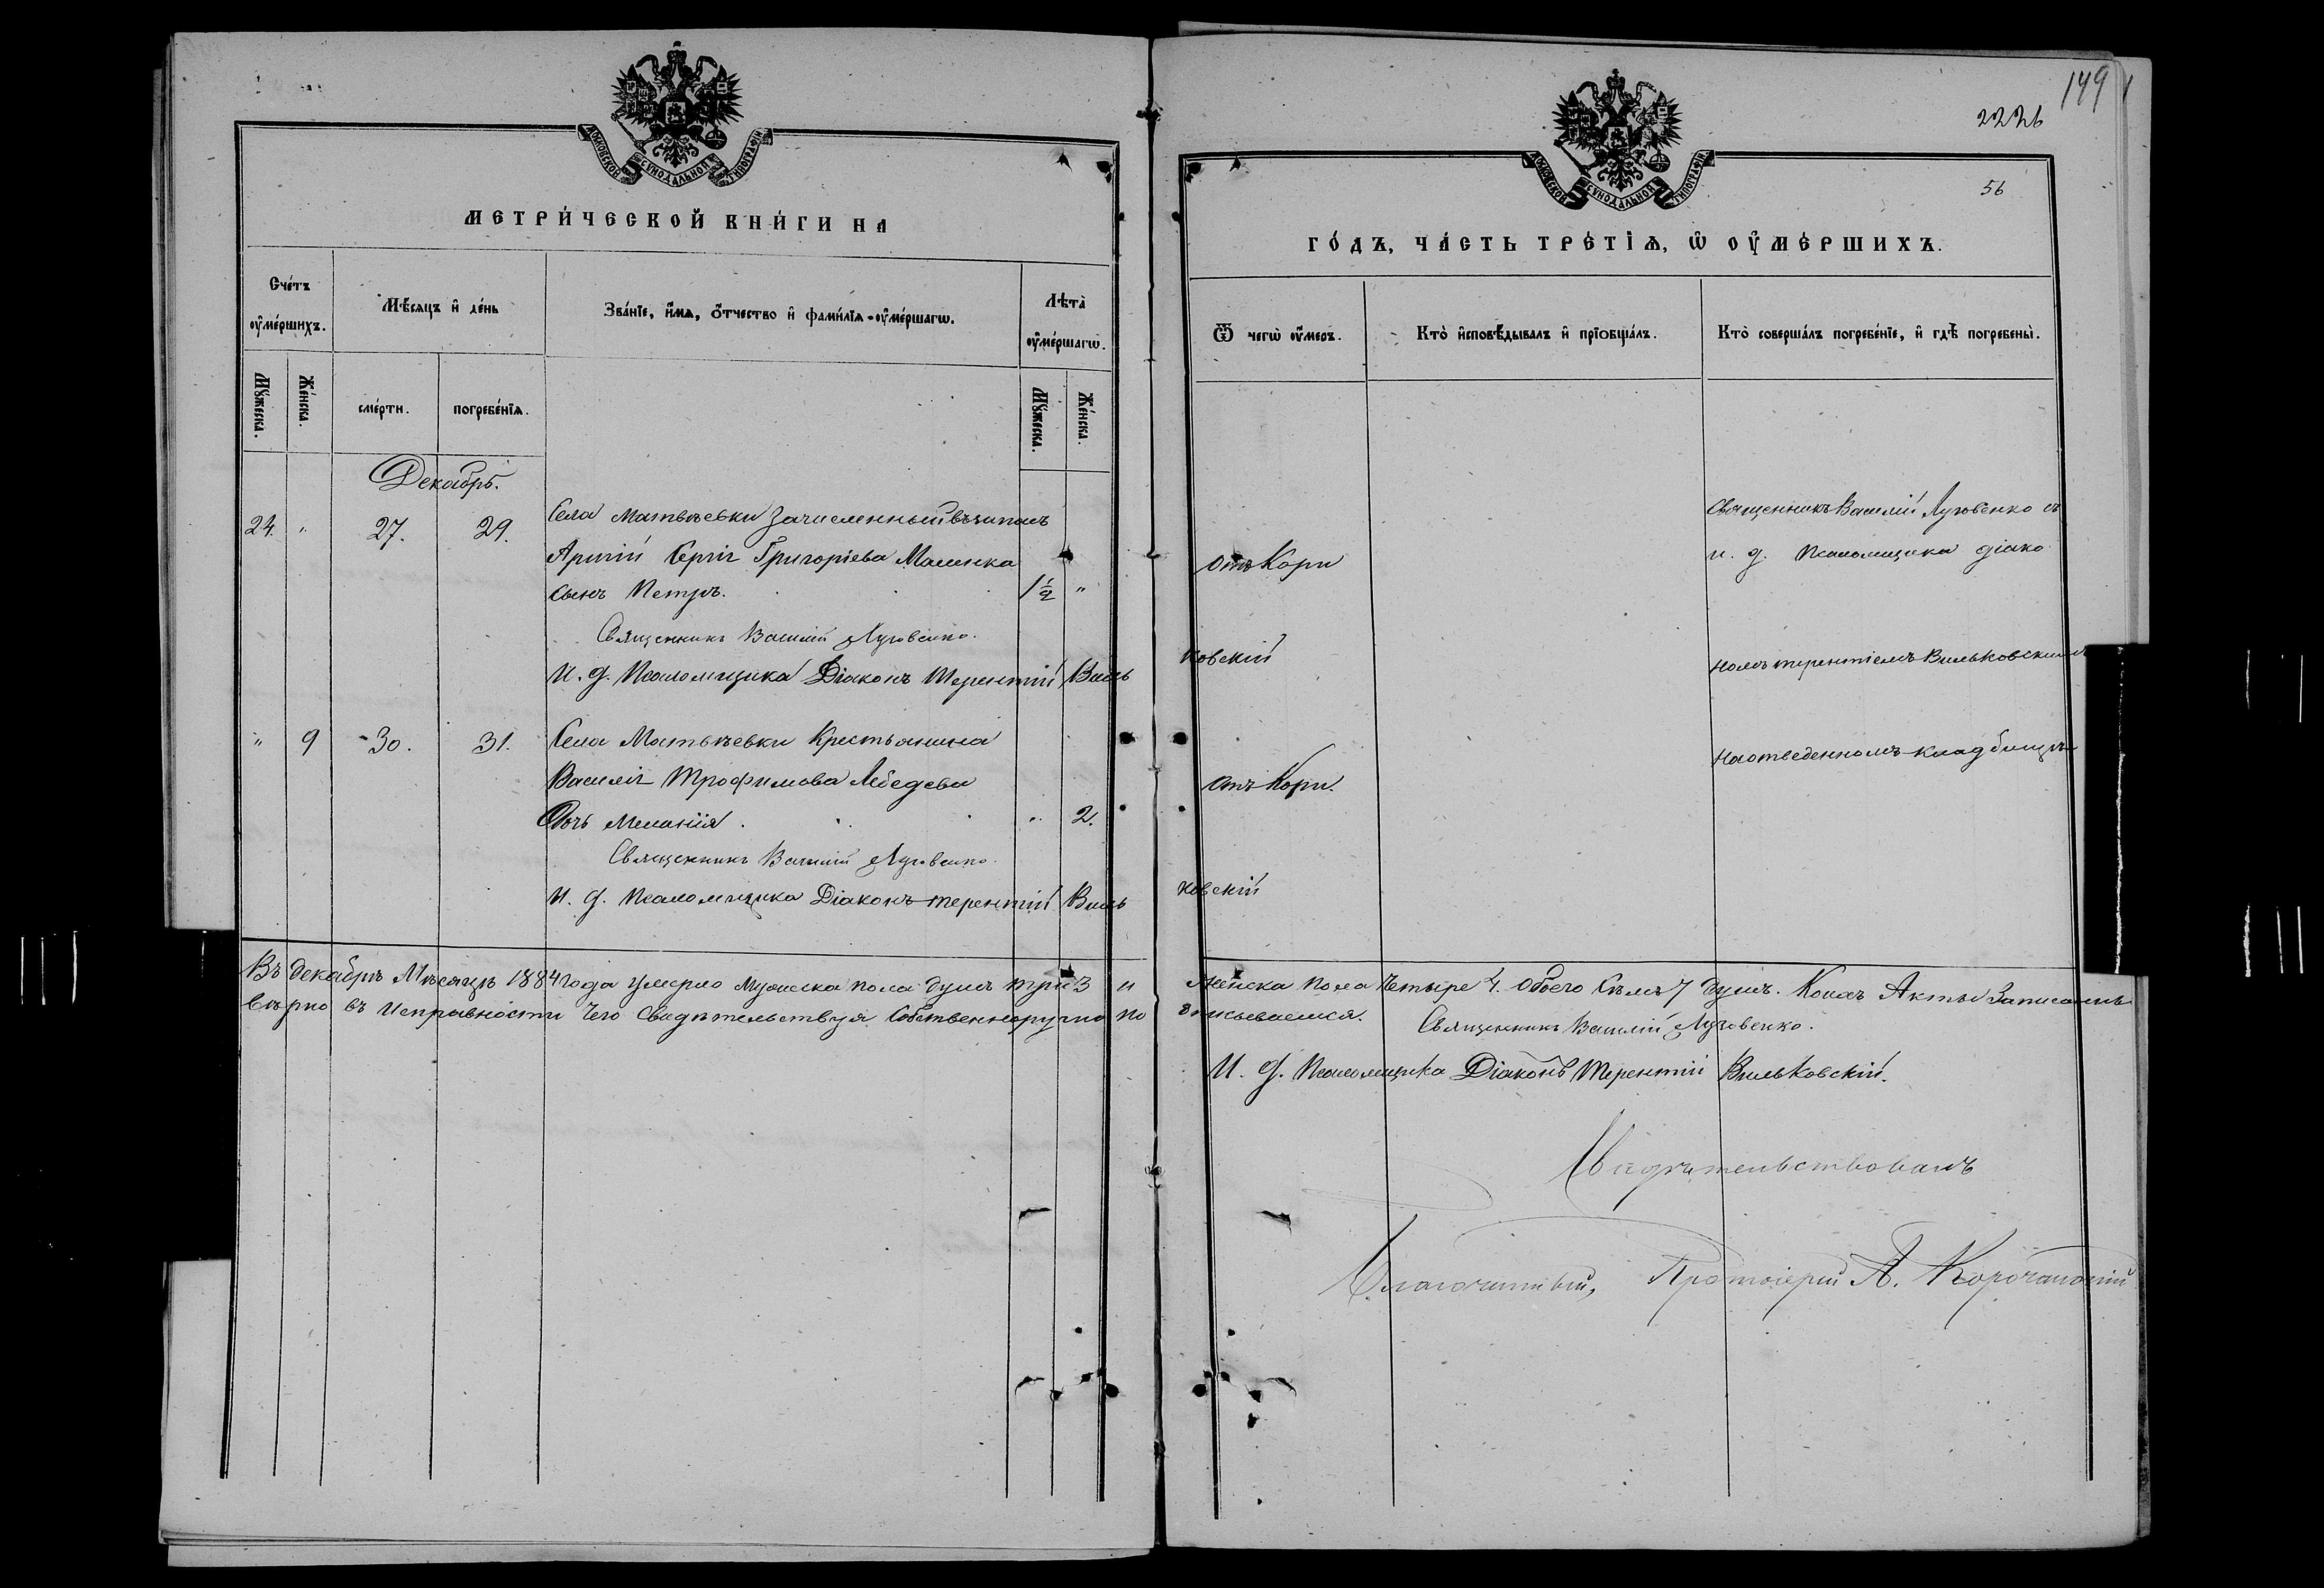 МОСКОВСКОЙ СѴНОДАЛЬНОЙ ТИПОГРАФІИ
МЕТРИ́ЧЕСКОЙ КНИ́ГИ НА
Сче́тъ ᲂу҆ме́ршихъ.
Мѣ́сяцъ и҆ де́нь
Зва́нїе, и҆́мѧ, ѻ҆́тчество и҆ фами́лїѧ ᲂу҆ме́ршагѡ.
Лѣта̀ ᲂу҆ме́ршагѡ.
Мꙋ́жеска.
Же́нска.
сме́рти.
погребе́нїѧ.
Мꙋ́жеска.
Же́нска.
Декабрь.
24. " 27. 29. Села Матвѣевки зачисленный въ запасъ
Армiи Сергiя Григорiева Малинка
сынъ Петръ. 1½ "
Священникъ Василiй Луговенко.
И. д. Псаломщика Дiаконъ Терентiй Виль
" 9 30. 31. Села Матвѣевки Крестьянина
Василiя Трофимова Лебедева
Дочь Меланiя. " 2.
Священникъ Василiй Луговенко.
И. д. Псаломщика Дiаконъ Терентiй Виль
Въ декабрѣ Мѣсяцѣ 1884 года умерло Мужеска пола душъ три 3 и
вѣрно въ Исправности чего Свидѣтельствуя Собственноручно по
149
222б
56
МОСКОВСКОЙ СѴНОДАЛЬНОЙ ТИПОГРАФІИ
ГО́ДЪ, ЧА́СТЬ ТРЕ́ТЇѦ, Ѡ҆ ОУ҆МЕ́РШИХЪ.
Ѿ чегѡ̀ ᲂу҆́меръ.
Кто̀ и҆сповѣ́дывалъ и҆ прїобща́лъ.
Кто̀ соверша́лъ погребе́нїе, и҆ гдѣ̀ погребены̀.
Священникъ Василiй Луговенко съ
отъ Кори
и. д. Псаломщика дiако
ковскiй
номъ Терентiемъ Вильковскимъ
На отведенномъ кладбищѣ
отъ Кори.
ковскiй
Женска пола Четыре 4. Обоего Семъ 7 душъ. Коихъ Акты Записаны
дписываемся.
Священникъ Василiй Луговенко.
И. д. Псаломщика Дiаконъ Терентiй Вильковскiй.
Свидѣтельствовалъ
Благочинный, Протоiерей А. Корочанскiй